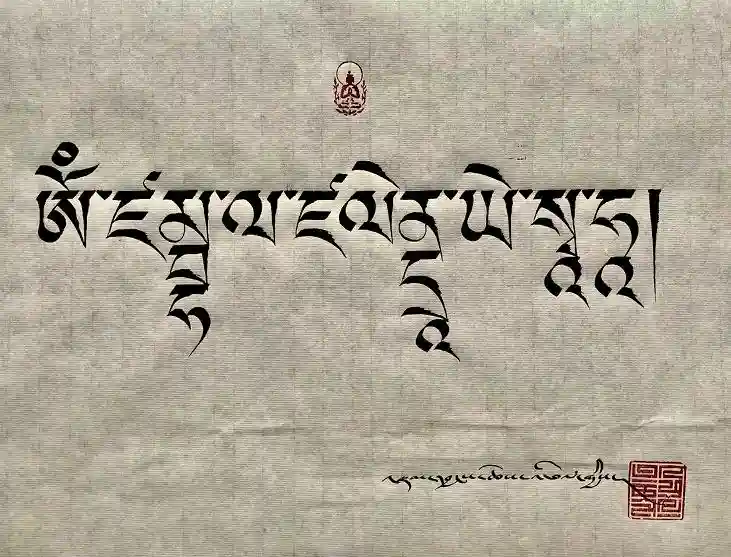 ཨོཾ་ཛ་མྦྷ་ལ་ཛ་ལེ་ནྡྲཱ་ཡེ་སྭཱ་ཧཱ།